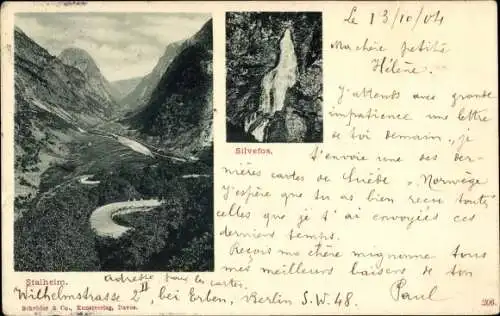 Le 13/10/04
Ma chère petite
Hélène.
J'attends avec grande
impatience une lettre
de toi demain, je
t'envoie une des der-
nières cartes de Suède & Norwège
J'espère que tu as bien reçue toutes
celles que je t'ai envoyées ces
derniers temps.
Reçois ma chère mignonne tous
mes meilleurs baisers de ton
Paul
Silvefos.
Stalheim.
Adresse pour les cartes
Wilhelmstrasse 2 II, bei Erben, Berlin S.W. 48.
Schröder & Co., Kunstverlag, Davos.
206.